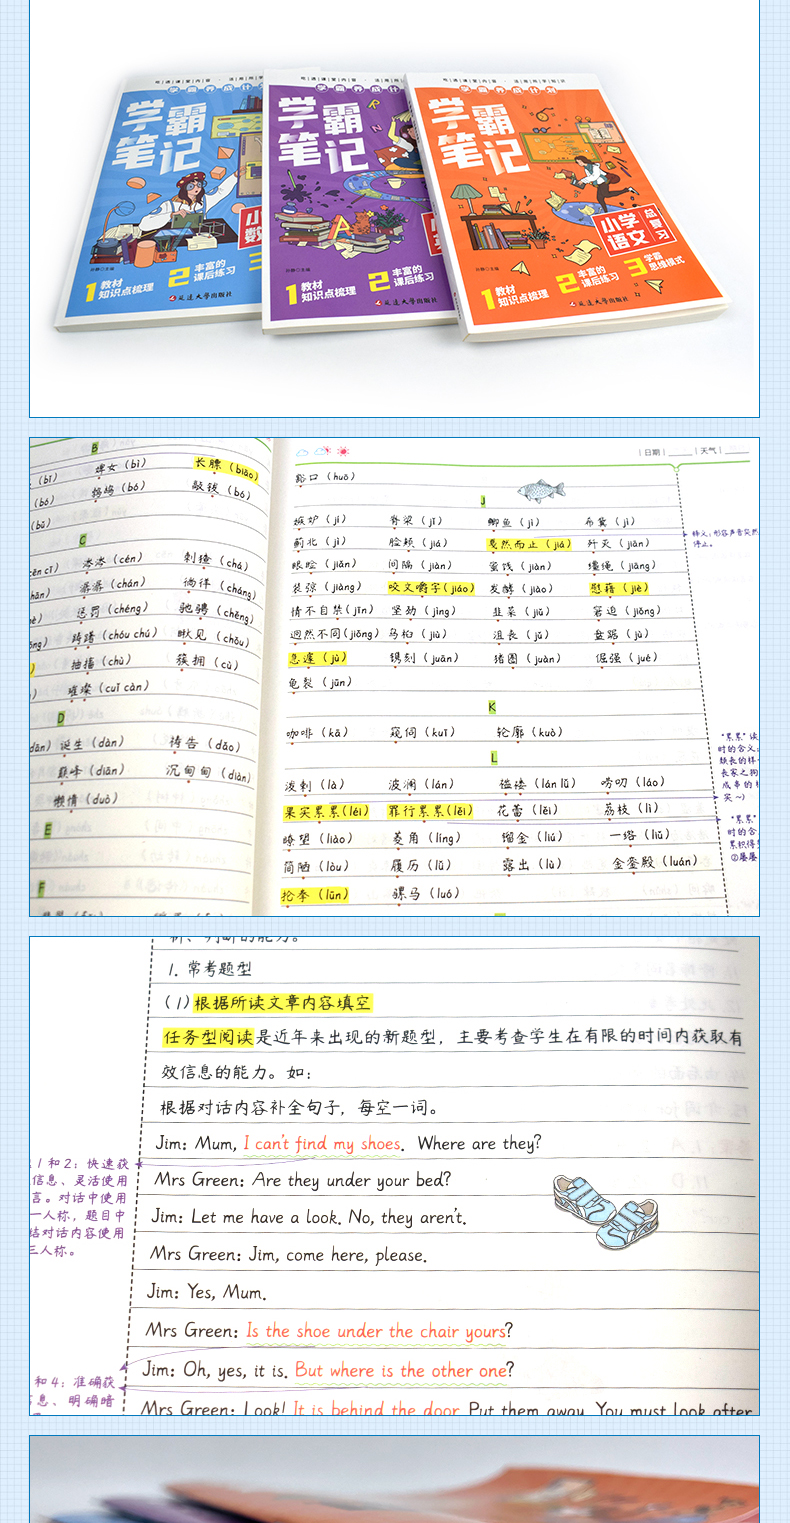 学霸笔记
小
数
1 教材知识点梳理
2 丰富的课后练习
3
延边大学出版社
学霸养成计
学霸笔记
小
英
1 教材知识点梳理
2 丰富的课后练习
延边大学出版社
吃透课堂内容 · 活用所学知识
学霸养成计划
学霸笔记
小学语文 总复习
孙静 主编
1 教材知识点梳理
2 丰富的课后练习
3 学霸思维模式
延边大学出版社
B
婢女(bì) 长膘(biāo)
(bó) 鹁鸪(bó) 敲钹(bó)
C
涔涔(cén) 刺猹(chá)
潺潺(chán) 徜徉(cháng)
惩罚(chéng) 驰骋(chěng)
踌躇(chóu chú) 瞅见(chǒu)
抽搐(chù) 簇拥(cù)
璀璨(cuǐ càn)
D
诞生(dàn) 祷告(dǎo)
巅峰(diān) 沉甸甸(diàn)
懒惰(duò)
E
F
日期 天气
豁口(huō)
J
嫉妒(jí) 脊梁(jǐ) 鲫鱼(jì) 布
蓟北(jì) 脸颊(jiá) 戛然而止(jiá) 歼灭(jiān)
眼睑(jiǎn) 间隔(jiàn) 蜜饯(jiàn) 缰绳(jiāng)
装弶(jiàng) 咬文嚼字(jiáo) 发酵(jiào) 慰藉(jiè)
情不自禁(jīn) 坚劲(jìng) 韭菜(jiǔ) 窘迫(jiǒng)
迥然不同(jiǒng) 乌桕(jiù) 沮丧(jǔ) 盘踞(jù)
急遽(jù) 镌刻(juān) 猪圈(juàn) 倔强(jué)
龟裂(jūn)
K
咖啡(kā) 窥伺(kuī) 轮廓(kuò)
L
泼剌(là) 波澜(lán) 褴褛(lán lǚ) 唠叨(láo)
果实累累(léi) 罪行累累(lěi) 花蕾(lěi) 荔枝(lì)
瞭望(liào) 菱角(líng) 溜金(liú) 一绺(liǔ)
简陋(lòu) 履历(lǚ) 露出(lù) 金銮殿(luán)
抡拳(lūn) 骡马(luó)
释义：形容声音突然
停止。
“累累”读
时的含义：
“累累”
时的含
1. 常考题型
(1)根据所读文章内容填空
任务型阅读是近年来出现的新题型，主要考查学生在有限的时间内获取有
效信息的能力。如：
根据对话内容补全句子，每空一词。
Jim: Mum, I can't find my shoes. Where are they?
Mrs Green: Are they under your bed?
Jim: Let me have a look. No, they aren't.
Mrs Green: Jim, come here, please.
Jim: Yes, Mum.
Mrs Green: Is the shoe under the chair yours?
Jim: Oh, yes, it is. But where is the other one?
Mrs Green: Look! It is behind the door. Put them away. You must look after
1 和 2：快速获
信息、灵活使用
言。对话中使用
一人称，题目中
结对话内容使用
三人称。
和 4：准确获
信息、明确暗